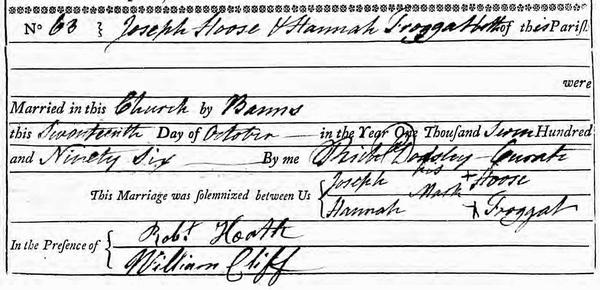 No 63 } Joseph Hoose & Hannah Froggat both of this Parish
were
Married in this Church by Banns
this Seventeenth Day of October in the Year One Thousand Seven Hundred
and Ninety Six By me Dodsley Curate
This Marriage was solemnized between Us { Joseph his + Hoose
Hannah Mark + Froggat
In the Presence of { Robt. Heath
William Cliff